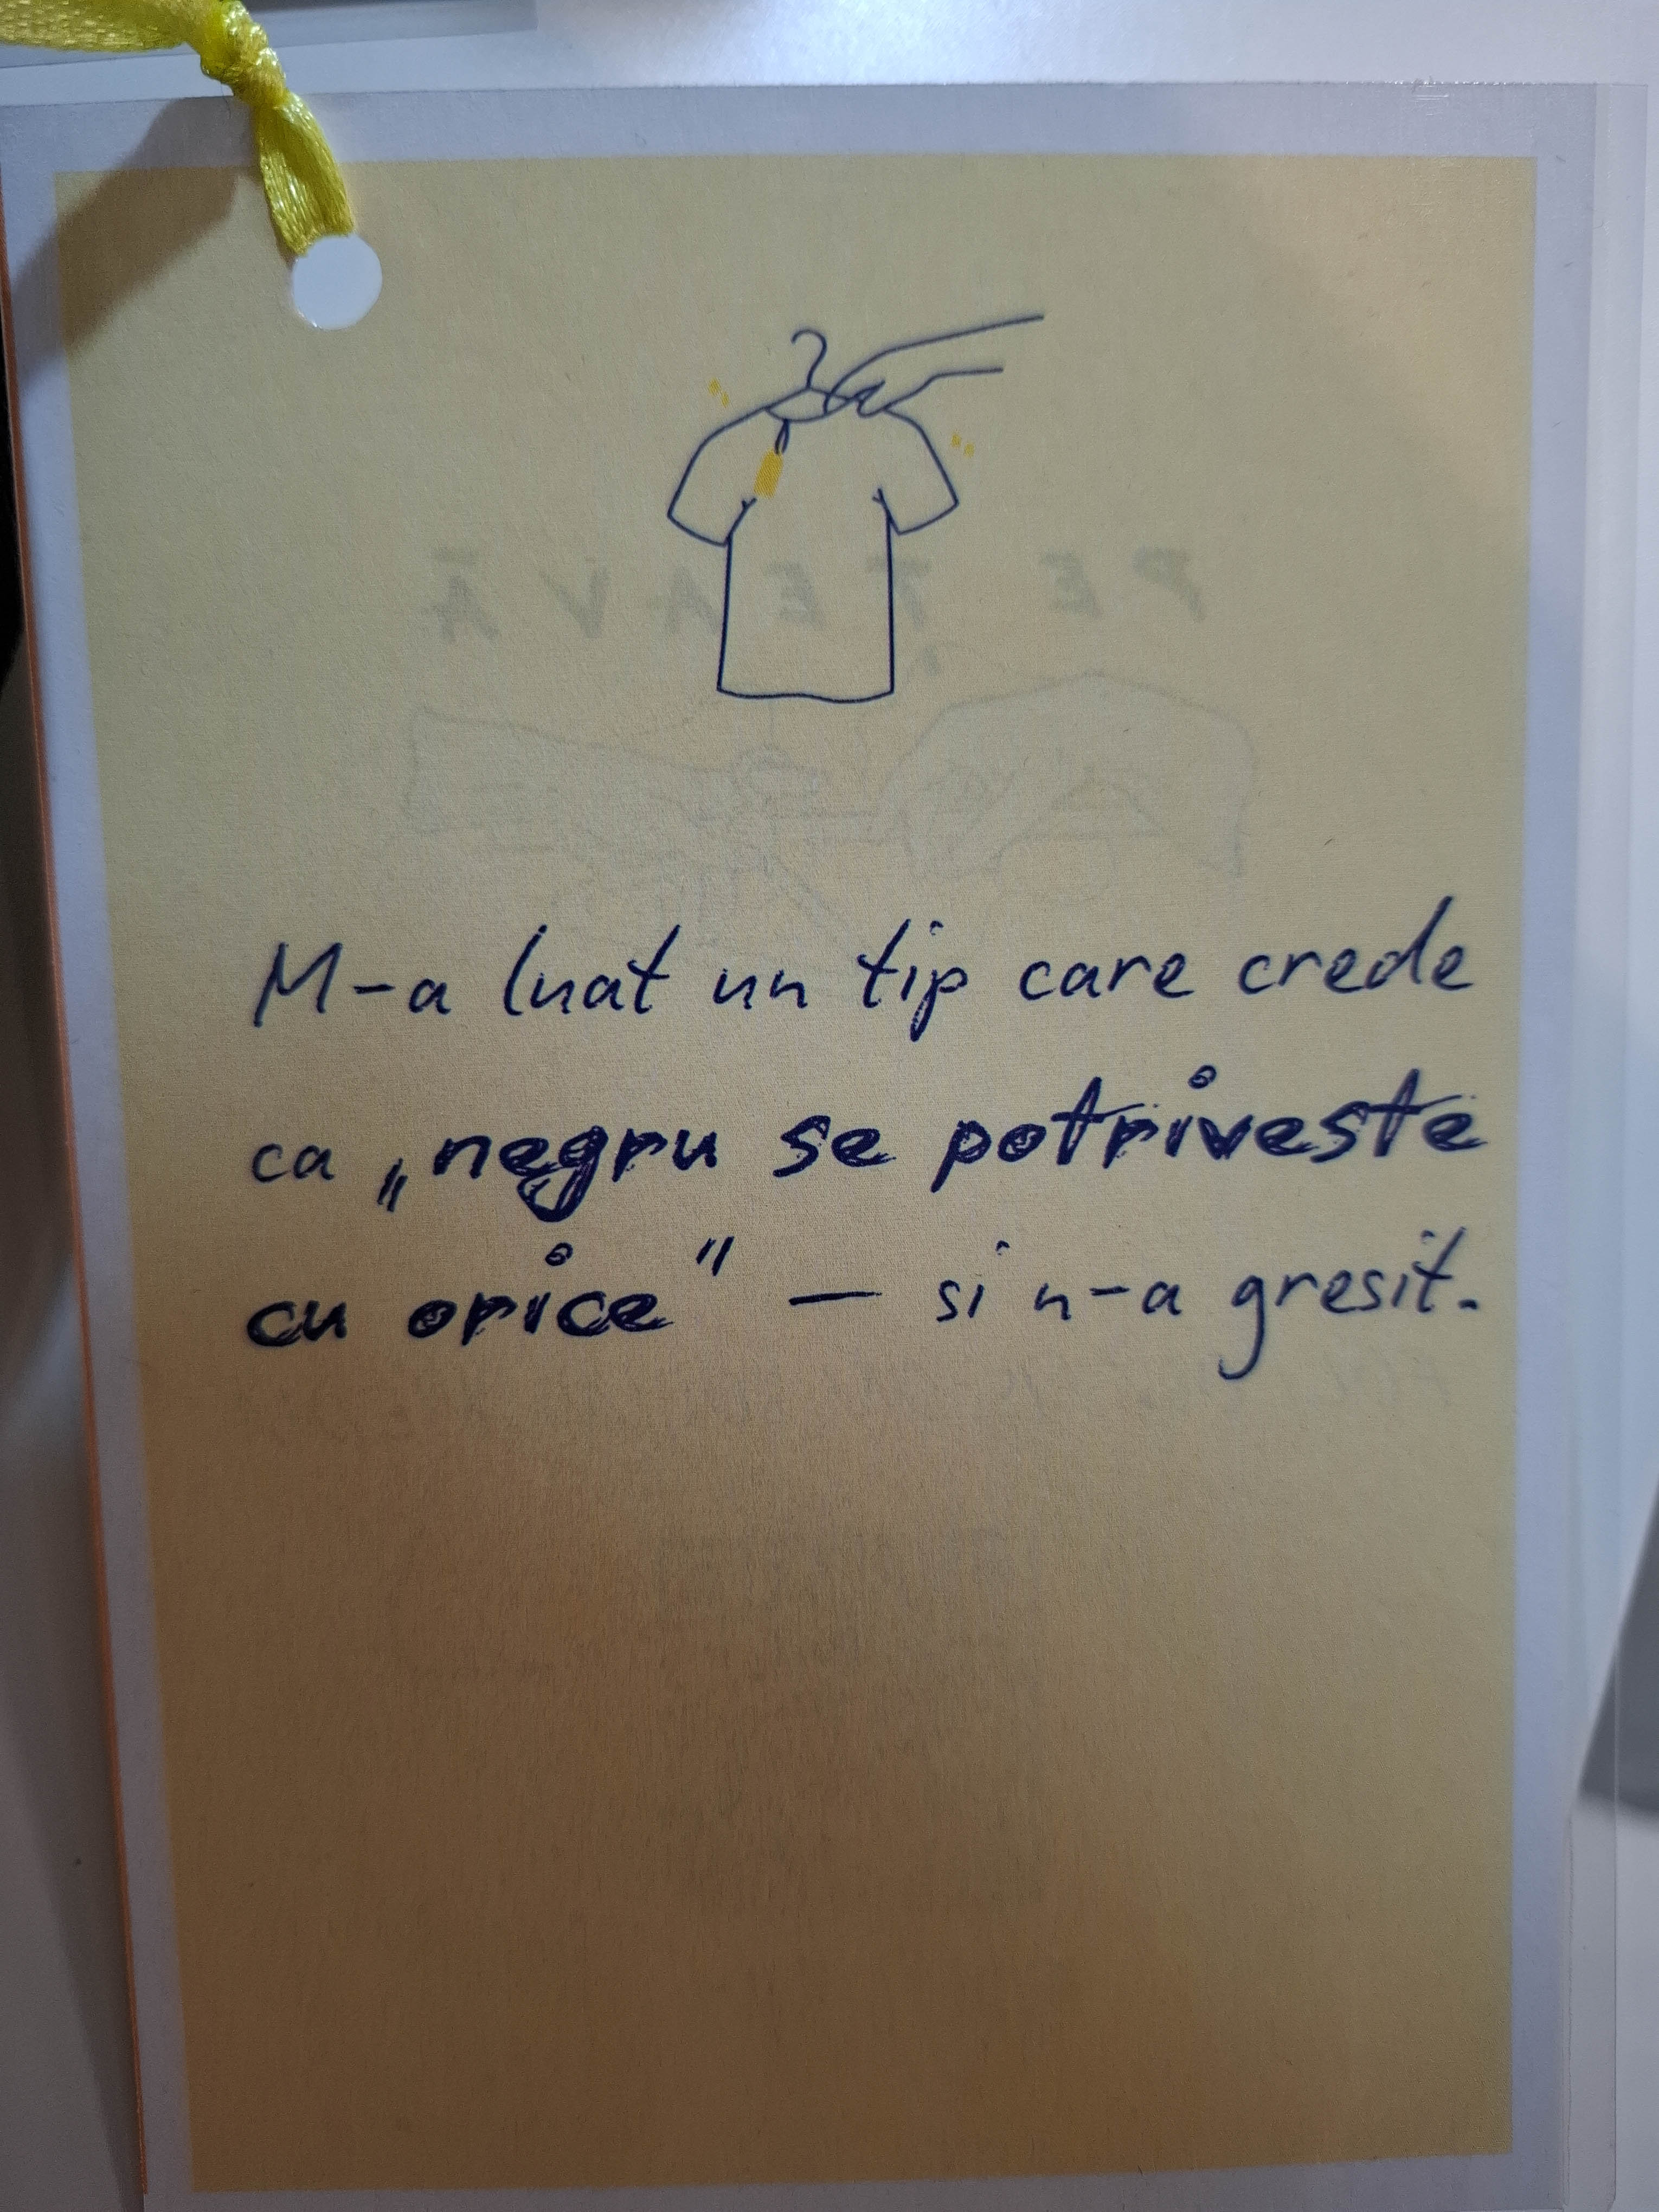 PE ȚEAVĂ
M-a luat un tip care crede
ca „negru se potriveste
cu orice" — si n-a gresit.